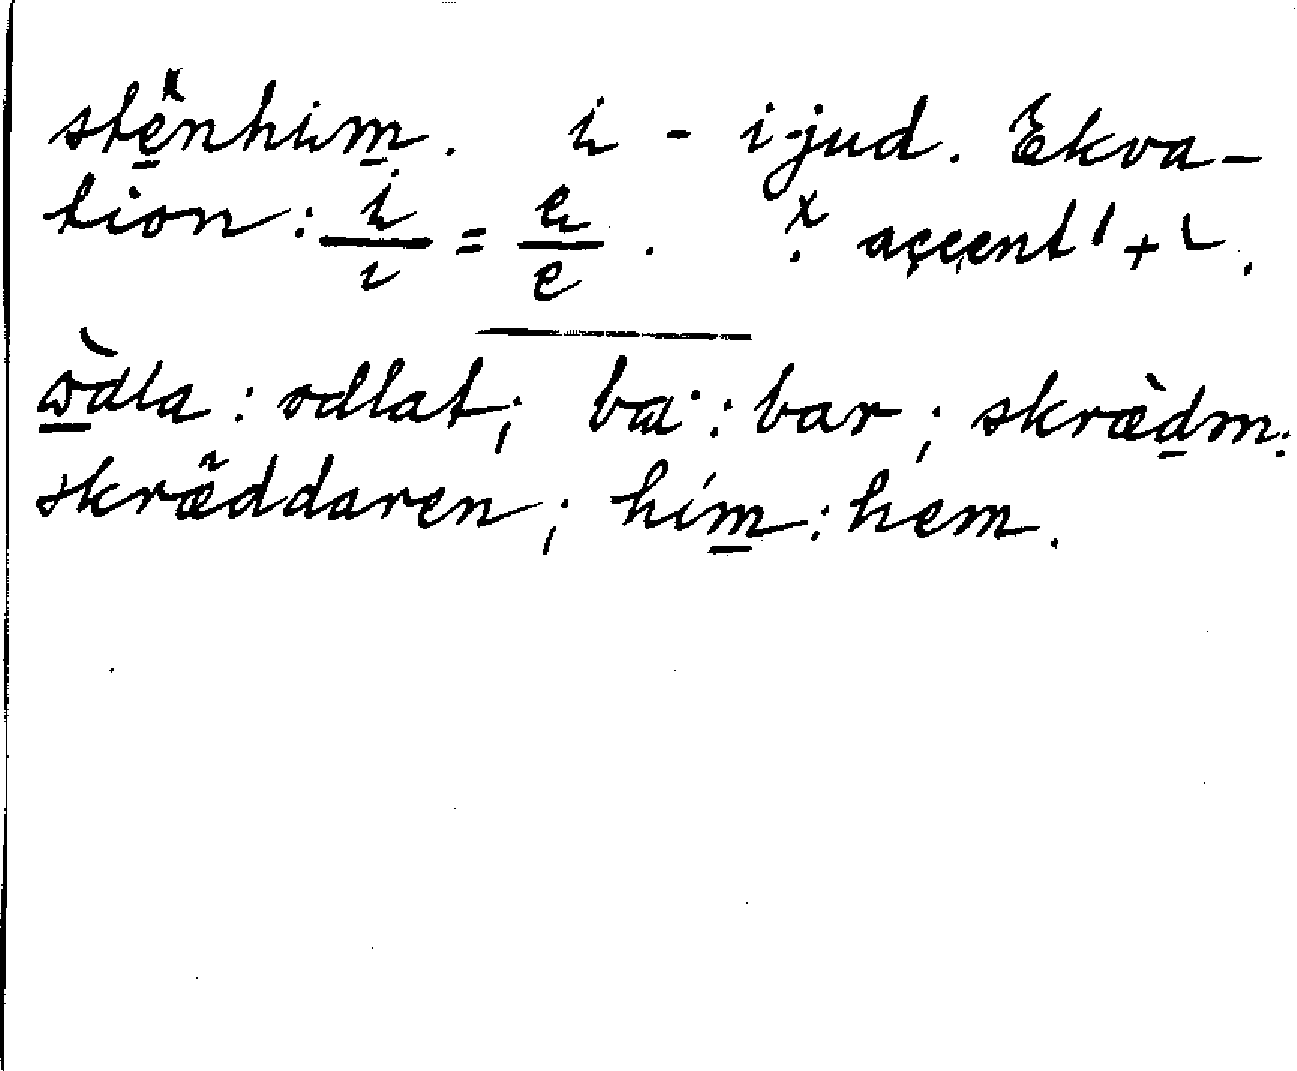 stë̱nhım̱. ı - i-jud. Ekva-
tion: i/ı = e/e. ẋ accent ˈ + ˋ.
ὼ̱dla : odlat; ba˙ : bar; skræ̀ḏm:
skräddaren; hím̱ : hem.